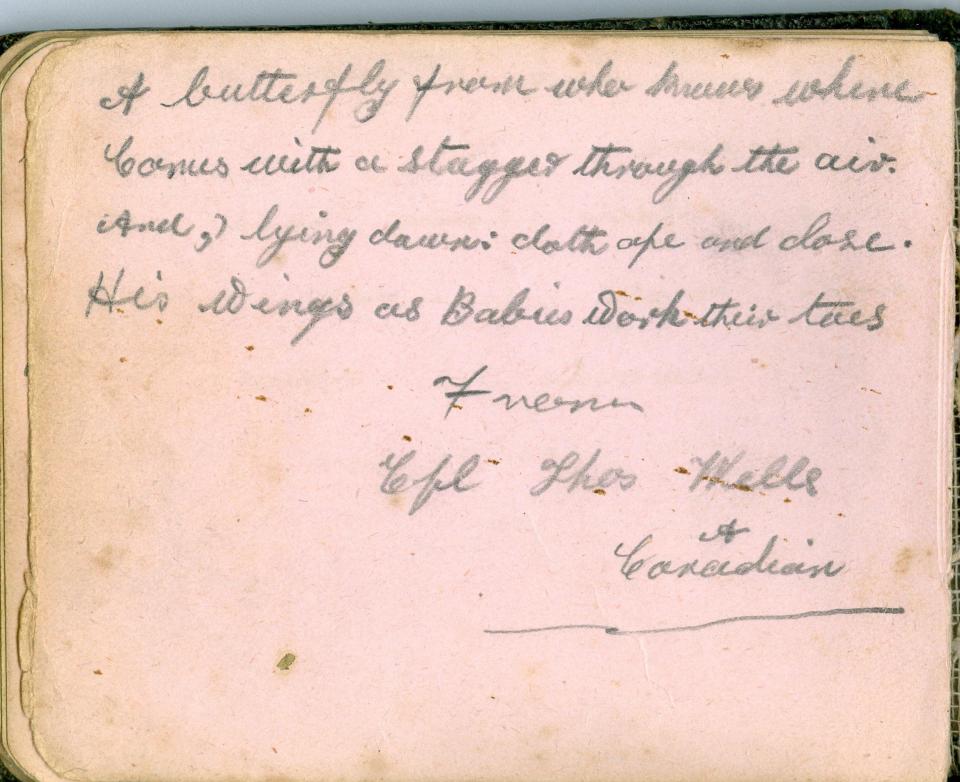 A butterfly from who knows where
Comes with a stagger through the air.
And, lying down: doth ope and close.
His Wings as Babies work their toes
From
Cpl Thos Wells
A
Canadian